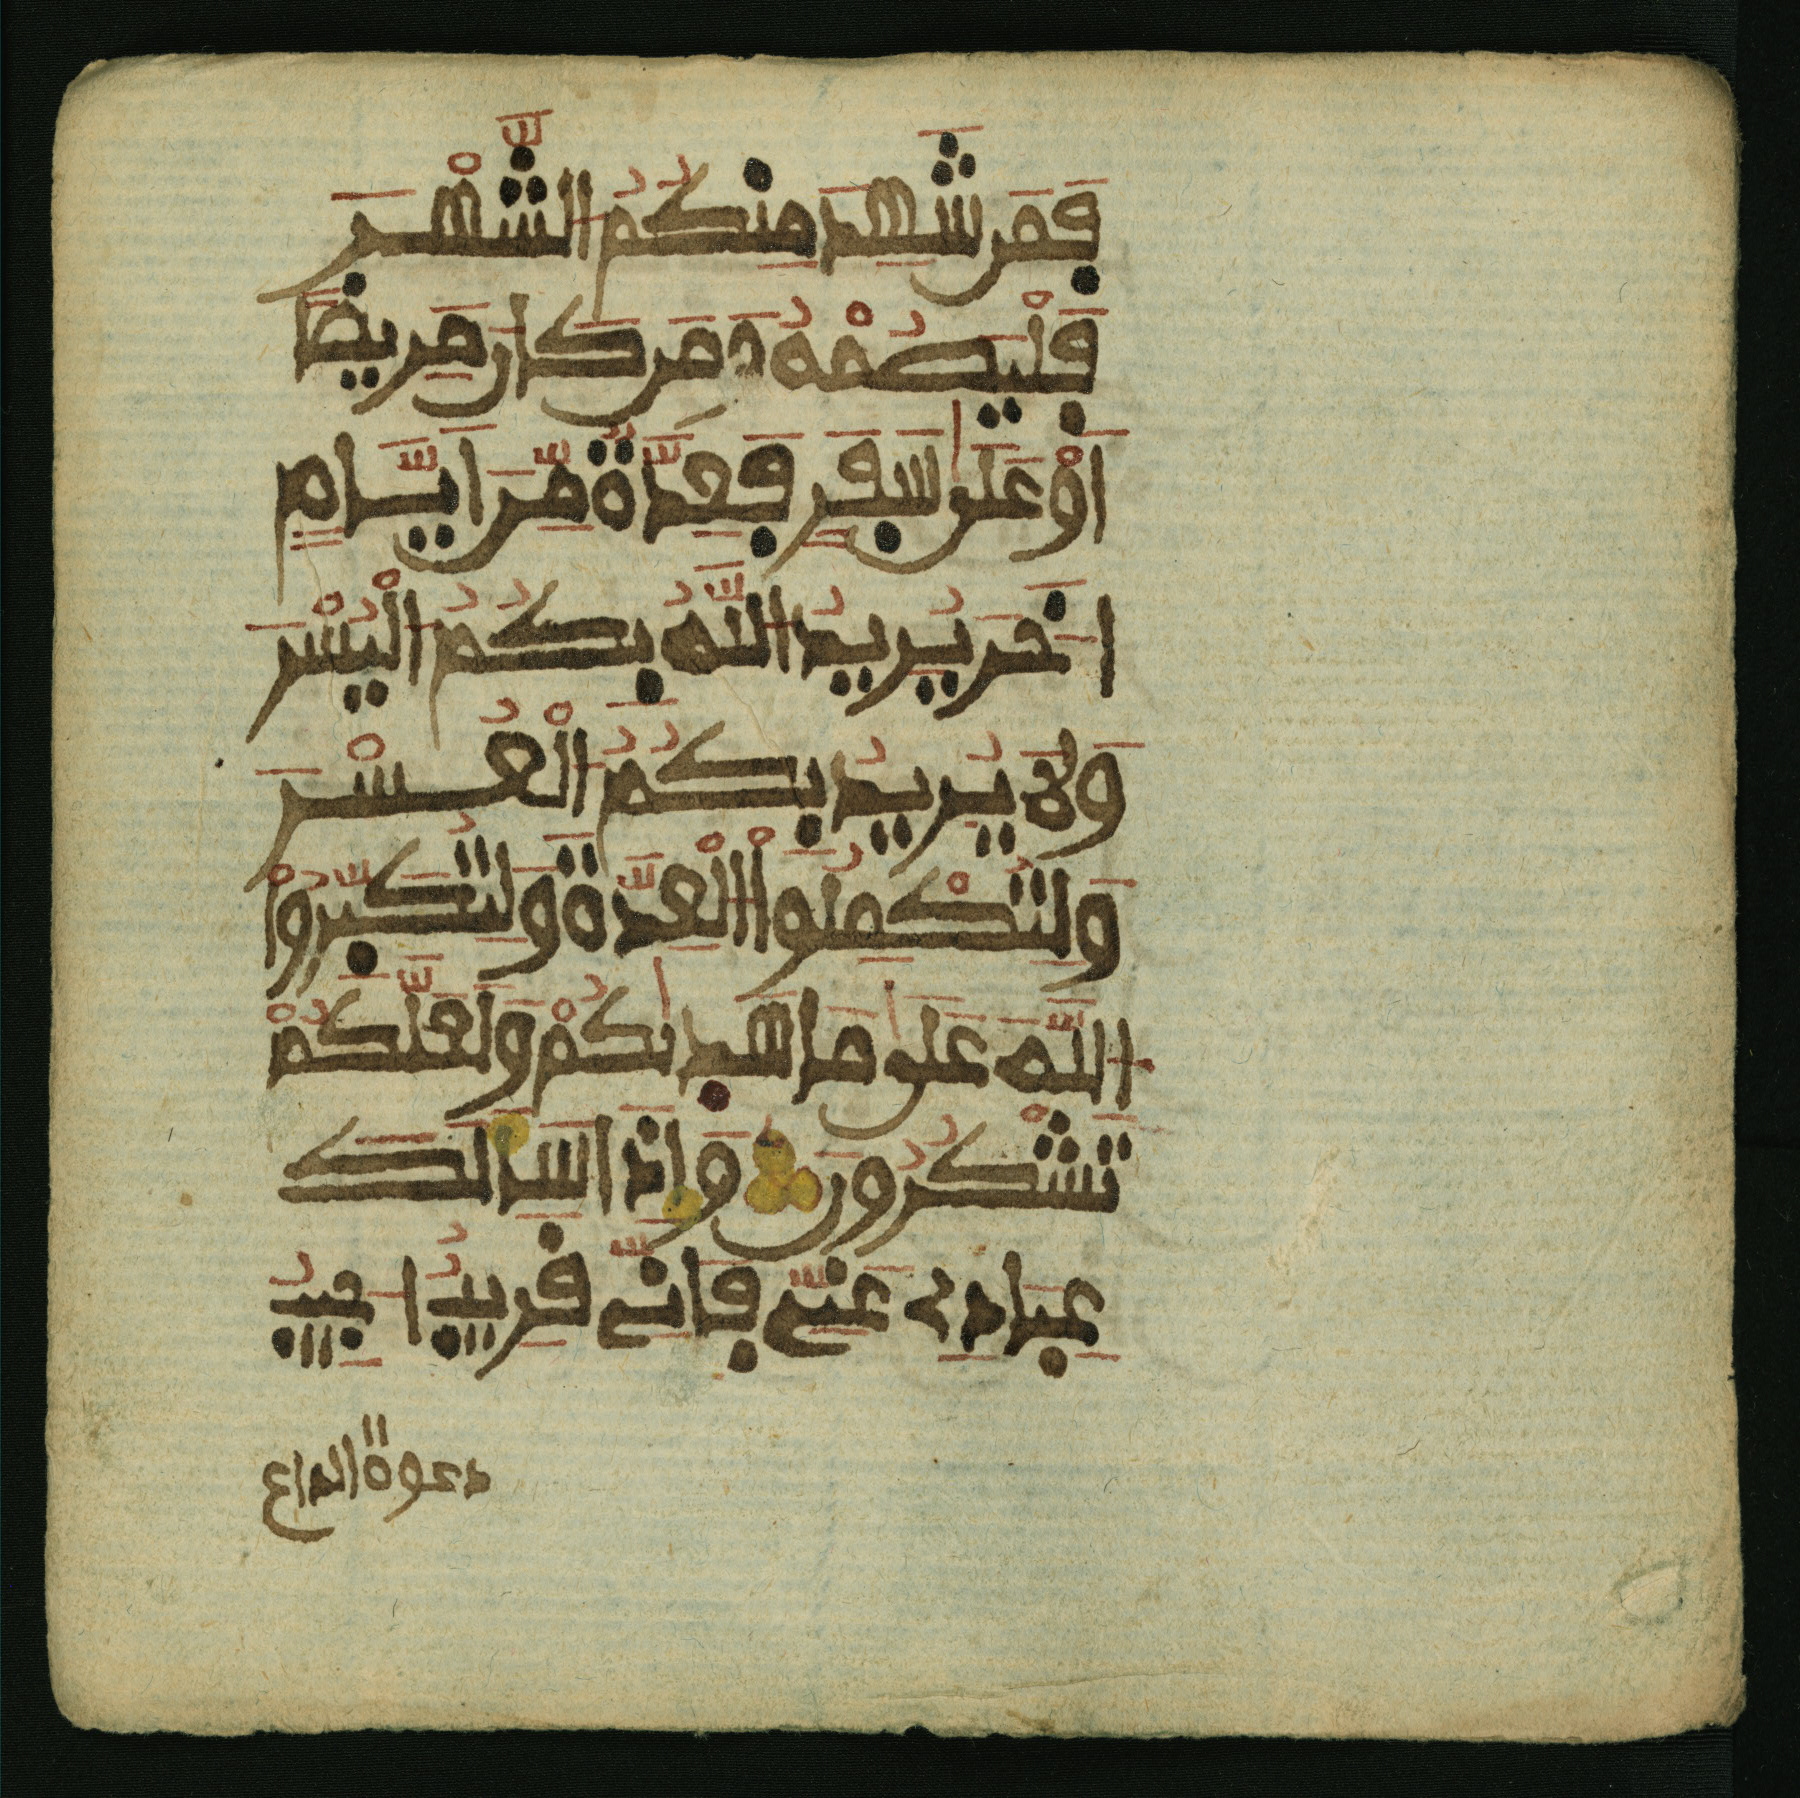 فَمَن شَهِدَ مِنكُمُ الشَّهْرَ
فَلْيَصُمْهُ وَمَن كَانَ مَرِيضًا
اَوْ عَلَىٰ سَفَرٍ فَعِدَّةٌ مِّنَ اَيَّامٍ
اُخَرَ يُرِيدُ اللَّهُ بِكُمُ الْيُسْرَ
وَلَا يُرِيدُ بِكُمُ الْعُسْرَ
وَلِتُكْمِلُواْ الْعِدَّةَ وَلِتُكَبِّرُواْ
اللَّهَ عَلَىٰ مَا هَدَىٰكُمْ وَلَعَلَّكُمْ
تَشْكُرُونَ وَإِذَا سَأَلَكَ
عِبَادِي عَنِّي فَإِنِّي قَرِيبٌ اُجِيبُ
دعوة الداع